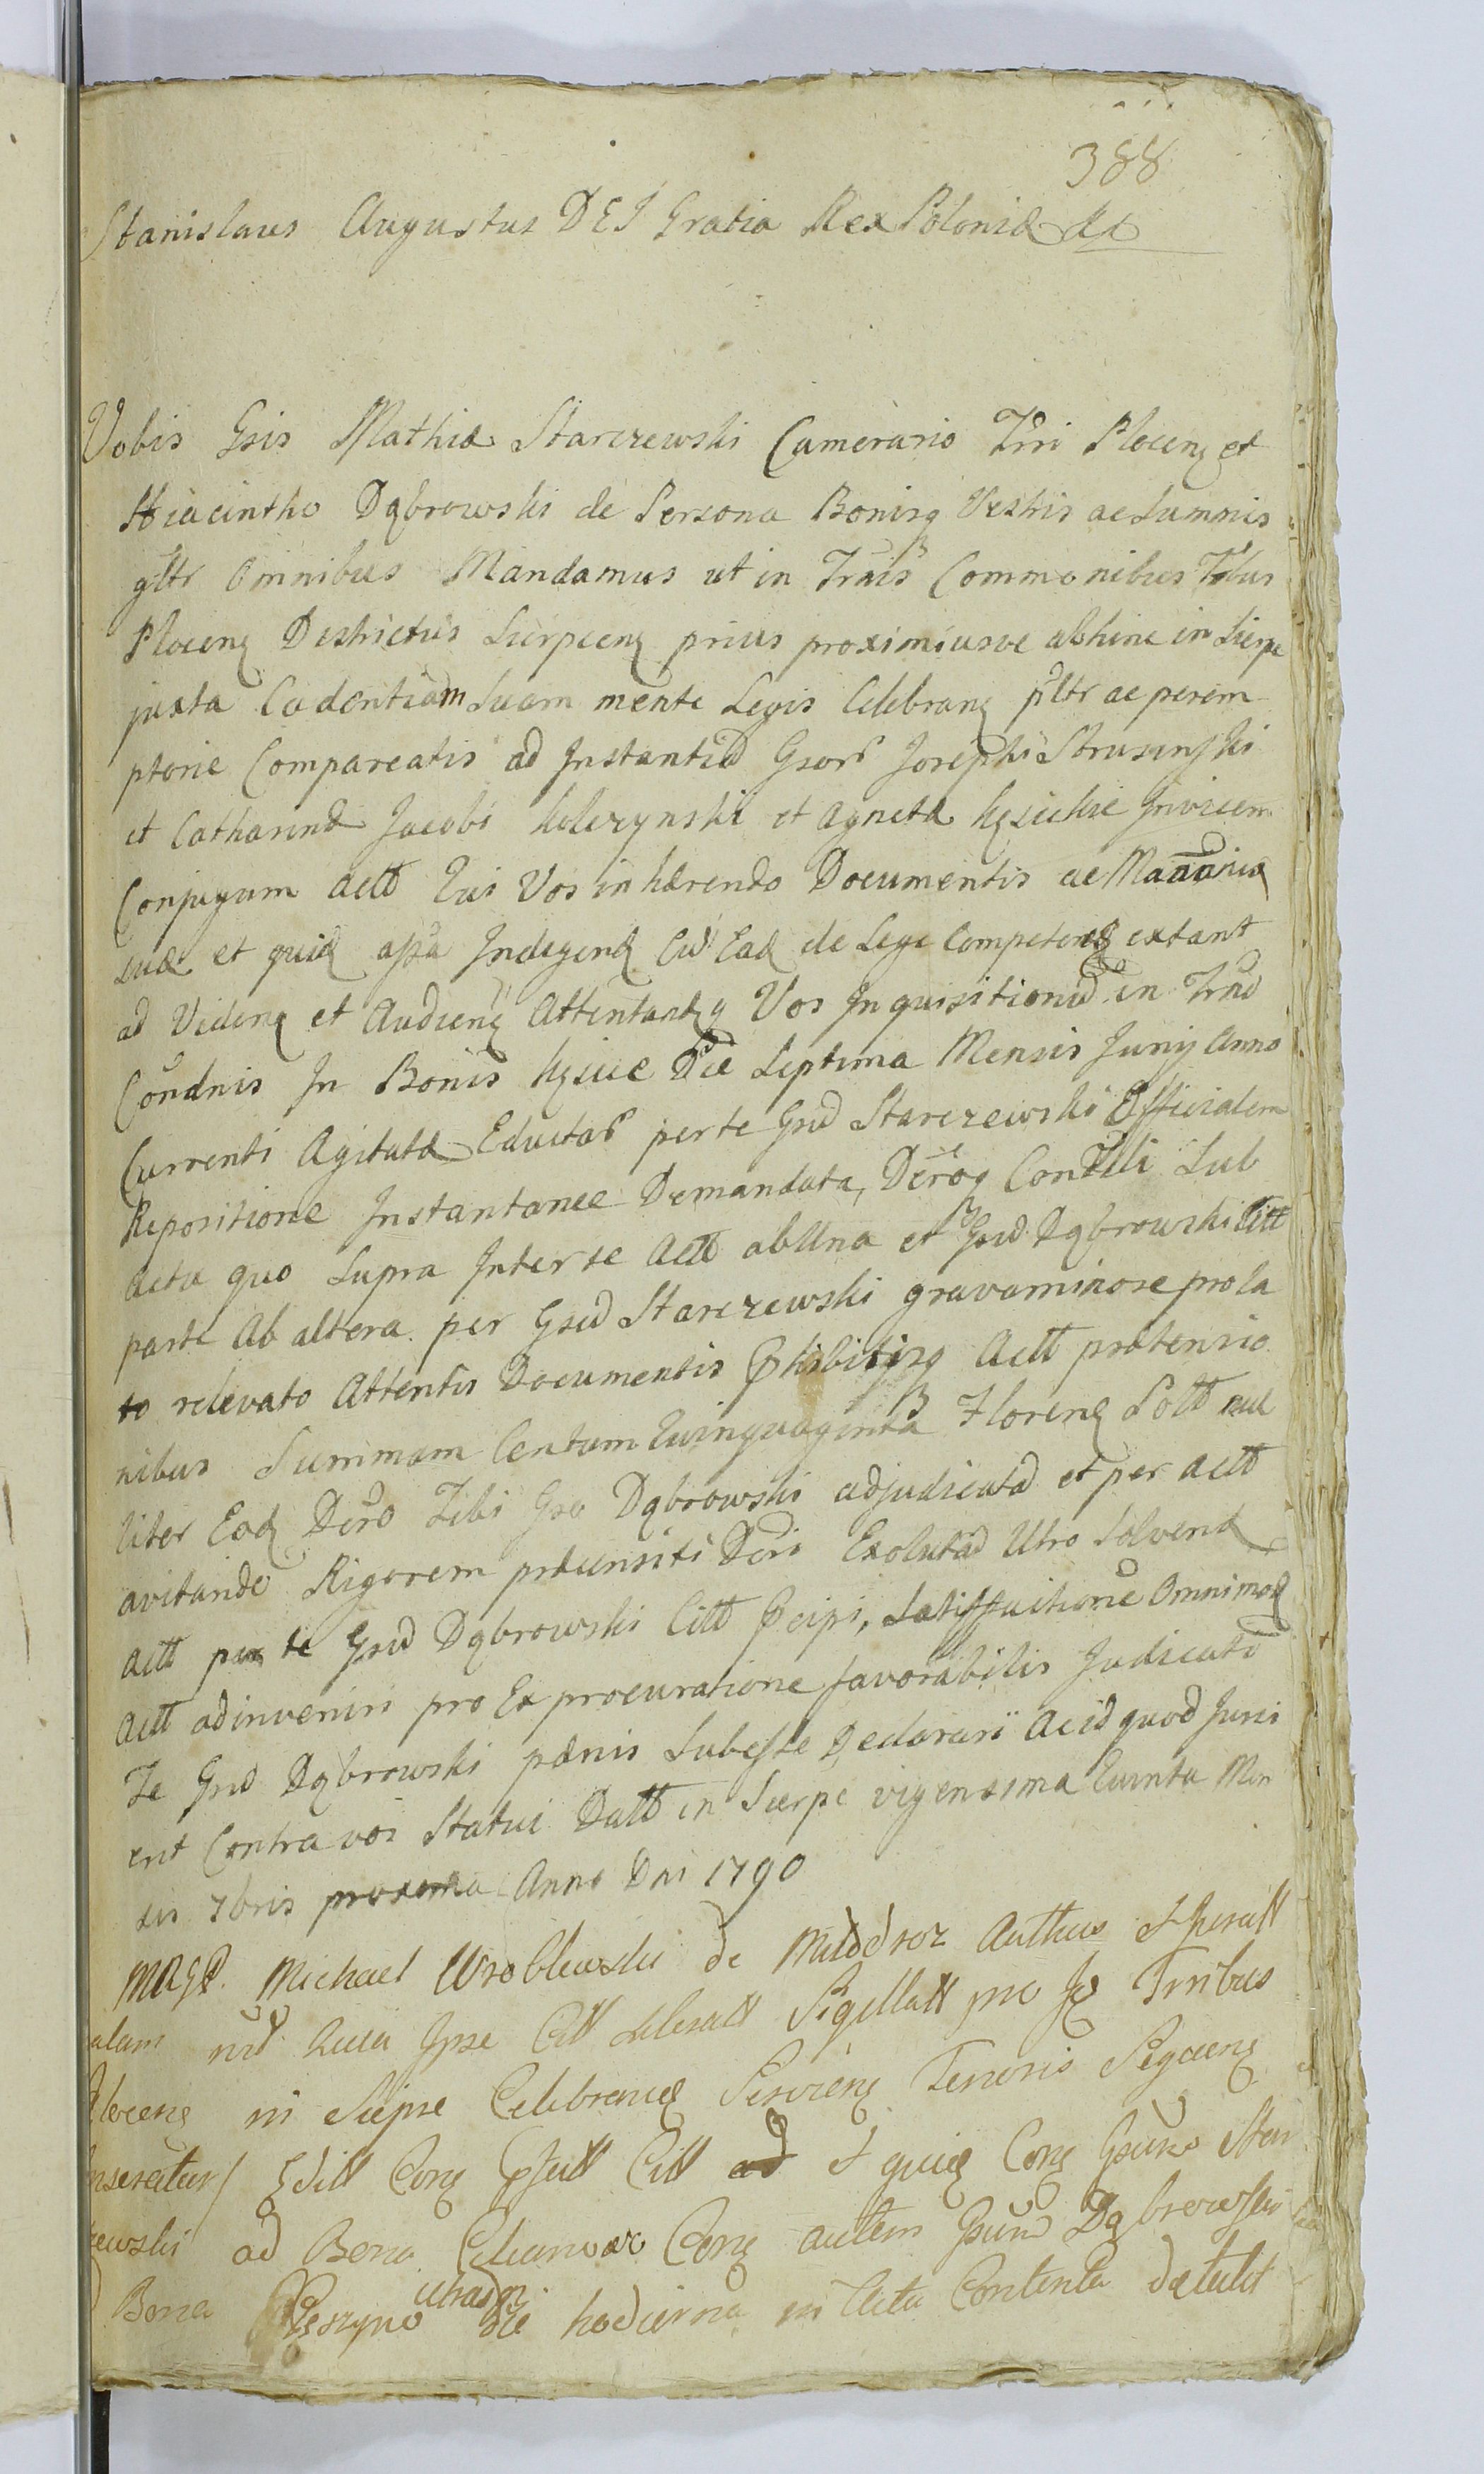 388
Stanislaus Augustus DEI Gratia Rex Poloniæ &c
Vobis Gsis Mathiæ Starczewski Camerario Trri Plocenȝ et
Hiacintho Dąbrowski de Persona Bonisq Vestris ac Summis
gltr Omnibus Mandamus ut in Trnis Commonibus Tribus
Plocenȝ Districtus Sierpcenȝ prius proximiusve abhinc in Sierpc
juxta Cadentiam Suam mente Legis Celebranȝ pltr ac perem
ptorie Compareatis ad Instantiã Gsorũ Josephi Strusinski
et Catharinæ Jacobi Kolczynski et Agnetæ Kęsickie Invicem
Conjugum Actt Qui Vos inhærendo Documentis ac
suæ et quiȝ Indigenȝ Ead de Lege Competenȝ extant
ad Videnȝ et Audienȝ Attentandȝ q Vos Inquisitionũ in Trnũ
Condnis In Bonis Kęsice Die Septima Mensis Junij Anno
Currenti Agitatæ Eductarũ per te Gsũ Starczewski Officialem
Repositione Instantanee Demandata, Decroq Condlli Sub
Actu quo Supra Inter se Actt ab Una et Gsũ Dąbrowski Citt
parte Ab altera per Gsũ Starczewski gravaminose prola
to relevato Attentis Documentis Exhibitisq Actt prætensio
nibus Summam Centum Quinquaginta Florenȝ Poltt nul
liter Eodȝ Dcro Tibi Gso Dąbrowski adjudicatã et per Actt
avitando Rigorem præinsiti Dcri Exolutã Utro Solvenȝ
Actt per te Gsũ Dąbrowski Citt Recipi, Satisfactione Omnimodȝ
Actt adinveniri pro Exprocuratione favorabilis Judicati
Te Gsũ Dąbrowski pænis Subesse Declarari Ac id quod Juris
erit Contra vos Statui Datt in Sierpc vigensima Quinta Men
sis 7bris proxima Anno Dni 1790
MRSP. Michael Wroblewski de Authus Liberatt
alam nrũ Qua Ipse Citt Liberatt Sigillatt pro Trribus
Plocenȝ in Siepre Celebrandȝ Servienȝ Tenoris Sequenȝ
nseratur / Editt Conȝ Citt ad et quiȝ Conȝ Gsum Star
zewski ad Bona Conȝ autem Gsum Dąbrowski
Bona utradȝ die hodierna in Cita Contenta detulit